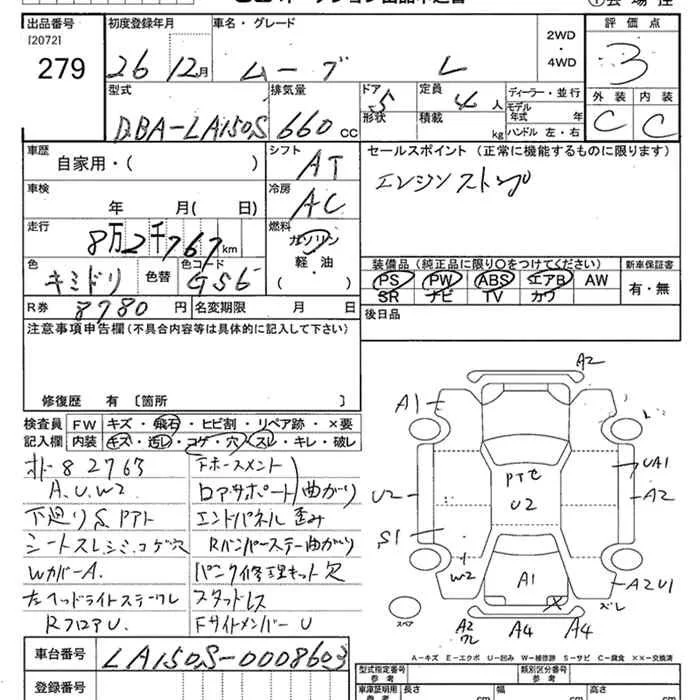 出品番号
I2072I
279
初度登録年月
26 12月
車名・グレード
ムーブ L
2WD
・
4WD
評価点
3
外装 内装
C C
型式
DBA-LA150S
排気量
660 cc
ドア 5
形状
定員 4 人
積載 kg
ディーラー・並行
モデル年式 年
ハンドル 左・右
車歴
自家用・( )
シフト
AT
セールスポイント (正常に機能するものに限ります)
エンジンストップ
車検
年 月(日)
冷房
AC
走行
8万2千767km
燃料
ガソリン
軽・油
( )
色
キミドリ
色替
色コード
G56
装備品 (純正品に限り〇をつけてください)
新車保証書
PS PW ABS エアB AW
SR ナビ TV カワ
有・無
R券 8780 円
名変期限 月 日
後日品
注意事項申告欄(不具合内容等は具体的に記入して下さい)
修復歴 有〔箇所
検査員
記入欄
FW キズ・飛石・ヒビ割・リペア跡・×要
内装 キズ・汚レ・コゲ・穴・スレ・キレ・破レ
オド82767
A.U.W2
下廻りS PTト
シートスレ.シミ.コゲ穴
WカバーA.
左ヘッドライトステーワレ
RフロアU.
Fホースメント
ロアサポート 曲がり
エンドパネル歪み
Rバンパーステー曲がり
パンク修理キット欠
スタッドレス
FサイドメンバーU
A2
A1
UA1
U2
PTセ
U2
A2
S1
W2
A1
A2U1
ズレ
スペア
A2
ワレ
A4
A4
A-キズ E-エクボ U-凹み W-補修跡 S-サビ C-腐食 ××-交換済
車台番号 LA150S-0008603
登録番号
型式指定番号
類別区分番号
車庫証明用
参考
長さ cm
幅 cm
高さ cm